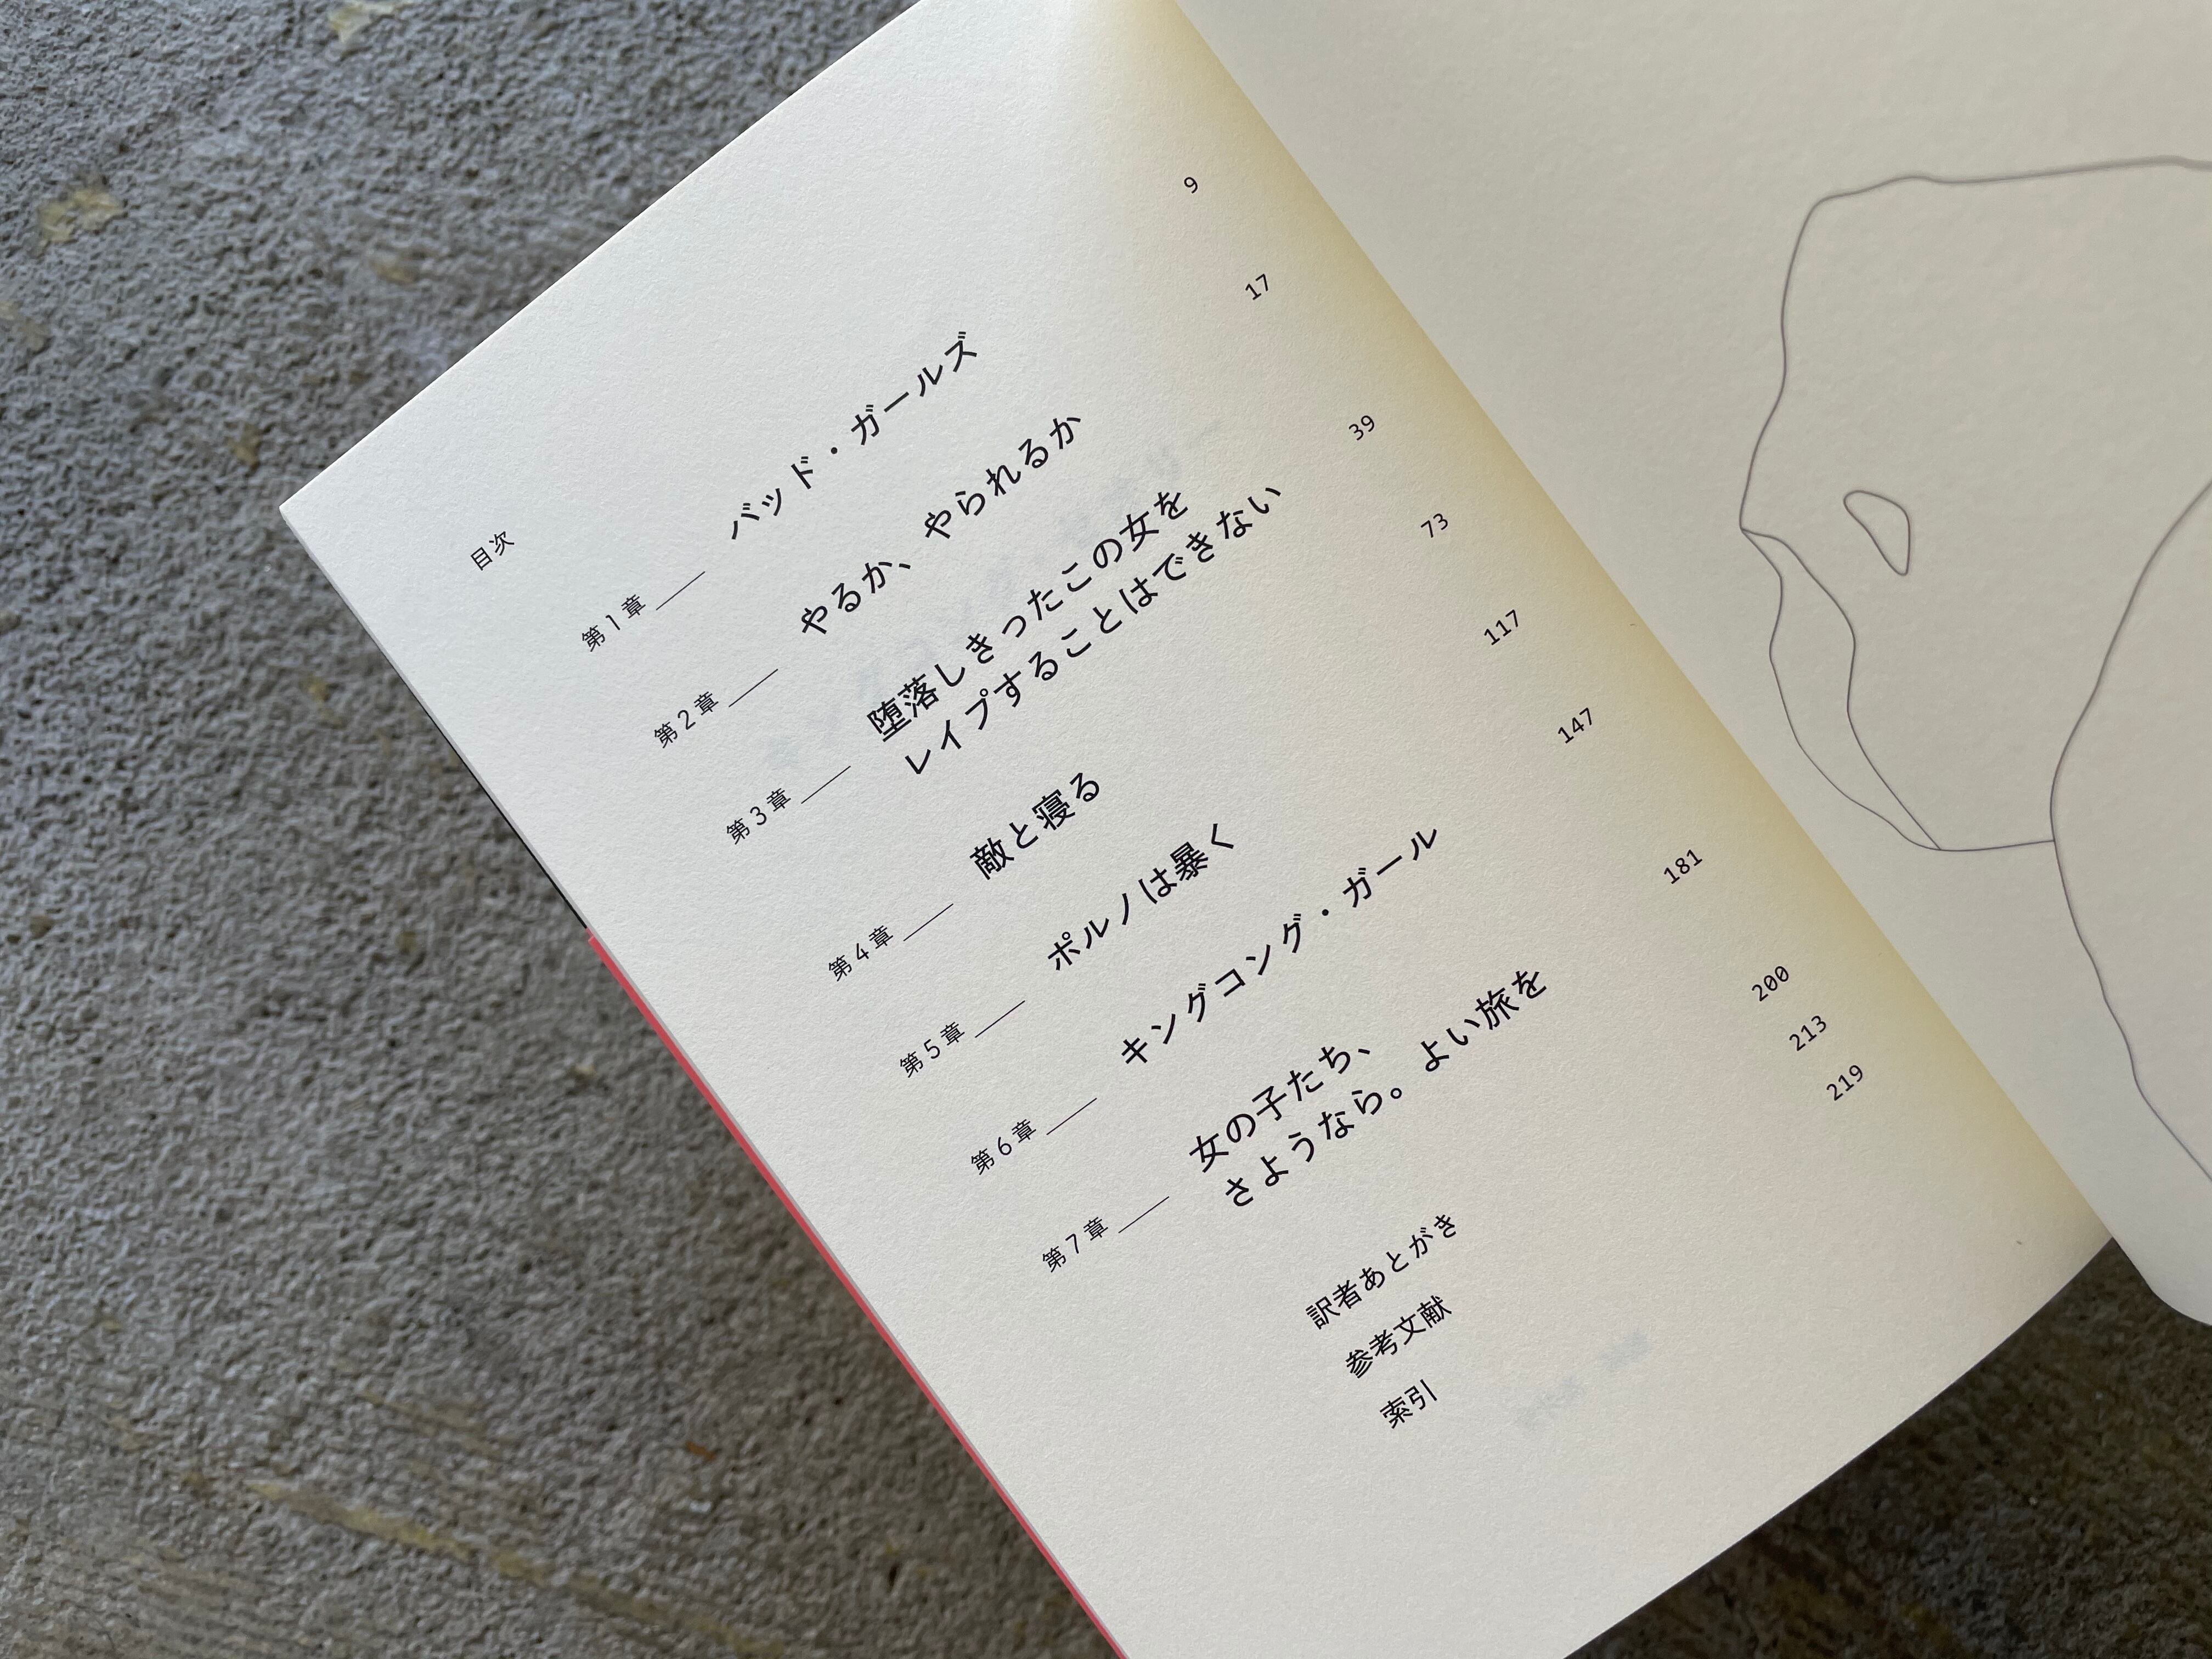 目次
第1章 バッド・ガールズ 9
第2章 やるか、やられるか 17
第3章 堕落しきったこの女を 39
レイプすることはできない
第4章 敵と寝る 73
第5章 ポルノは暴く 117
第6章 キングコング・ガール 147
第7章 女の子たち、 181
さようなら。よい旅を
訳者あとがき 200
参考文献 213
索引 219